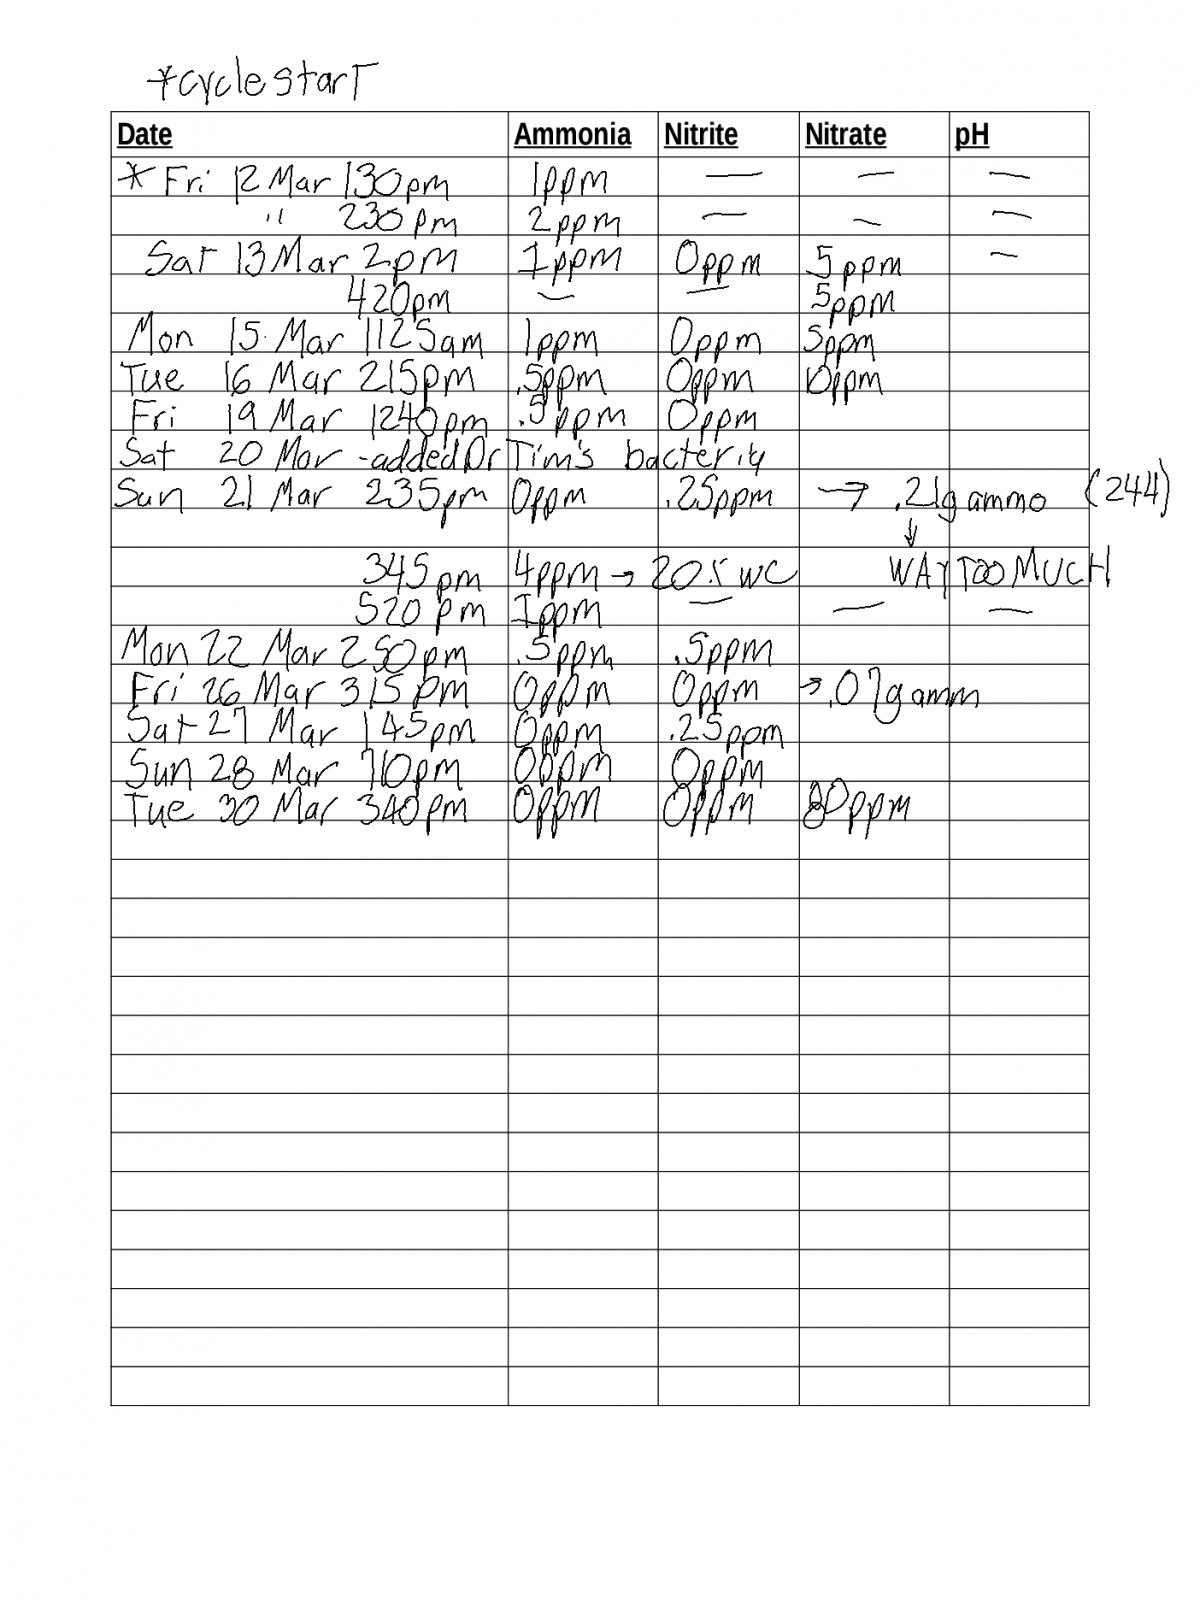 *cycle start
Date Ammonia Nitrite Nitrate pH
* Fri 12 Mar 130pm 1ppm — — —
" 230pm 2ppm — — —
Sat 13 Mar 2pm 1ppm 0ppm 5ppm —
420pm — — 5ppm
Mon 15 Mar 1125am 1ppm 0ppm 5ppm
Tue 16 Mar 215pm .5ppm 0ppm 10ppm
Fri 19 Mar 1240pm .5ppm 0ppm
Sat 20 Mar - added Dr Tim's bacteria
Sun 21 Mar 235pm 0ppm .25ppm → .21g ammo (244)
↓
345pm 4ppm → 20% WC WAY TOO MUCH
520pm 1ppm — — —
Mon 22 Mar 250pm .5ppm .5ppm
Fri 26 Mar 315pm 0ppm 0ppm → .07g amm
Sat 27 Mar 145pm 0ppm .25ppm
Sun 28 Mar 710pm 0ppm 0ppm
Tue 30 Mar 340pm 0ppm 0ppm 80ppm